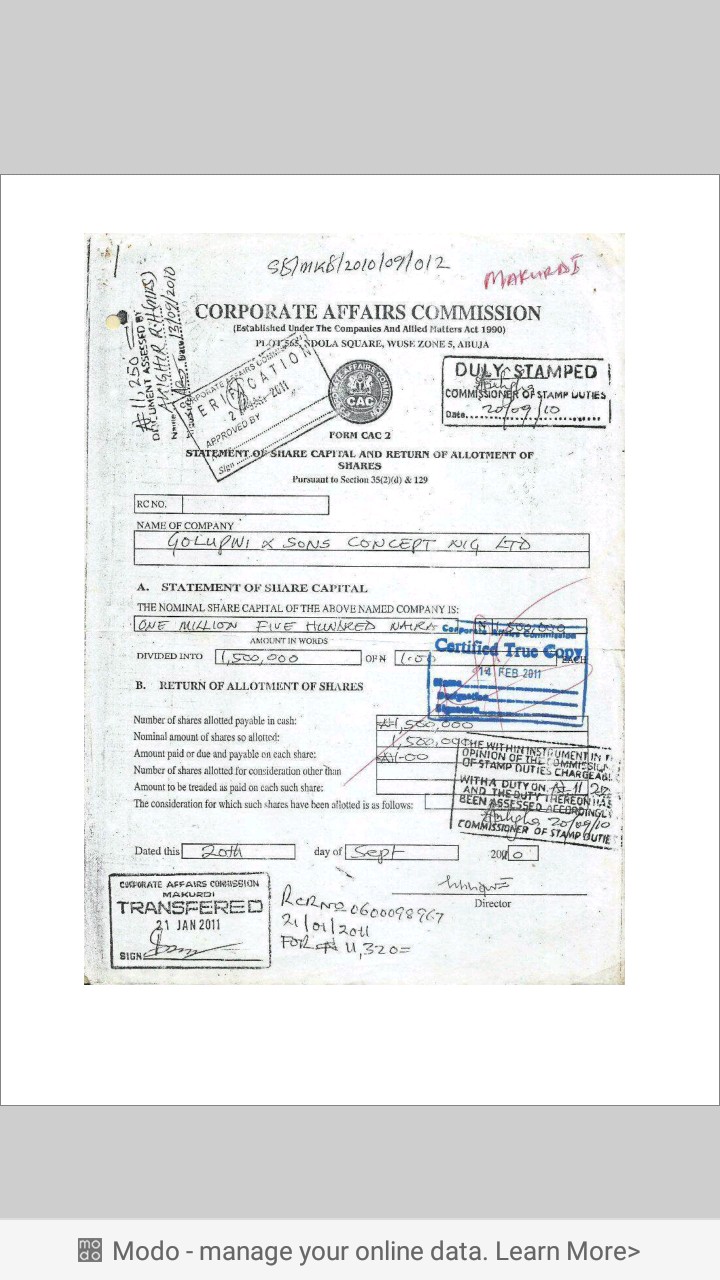 SB/MKB/2010/09/012
MAKURDI
₦11,250
DOCUMENT ASSESSED BY
Date 13/09/2010
CORPORATE AFFAIRS COMMISSION
(Established Under The Companies And Allied Matters Act 1990)
PLOT 565, NDOLA SQUARE, WUSE ZONE 5, ABUJA
CORPORATE AFFAIRS COMMISSION
VERIFICATION
2011
APPROVED BY
Sign
CAC
DULY STAMPED
COMMISSIONER OF STAMP DUTIES
Date 20/09/10
FORM CAC 2
STATEMENT OF SHARE CAPITAL AND RETURN OF ALLOTMENT OF
SHARES
Pursuant to Section 35(2)(d) & 129
RC NO.
NAME OF COMPANY
GOLUPINI & SONS CONCEPT NIG LTD
A. STATEMENT OF SHARE CAPITAL
THE NOMINAL SHARE CAPITAL OF THE ABOVE NAMED COMPANY IS:
ONE MILLION FIVE HUNDRED NAIRA ₦1,500,000
AMOUNT IN WORDS
DIVIDED INTO 1,500,000 OF ₦ 1.00 EACH
Corporate Affairs Commission
Certified True Copy
14 FEB 2011
Name
Designation
Signature
B. RETURN OF ALLOTMENT OF SHARES
Number of shares allotted payable in cash: ₦1,500,000
Nominal amount of shares so allotted: 1,500,000
Amount paid or due and payable on each share: ₦1-00
Number of shares allotted for consideration other than
Amount to be treaded as paid on each such share:
The consideration for which such shares have been allotted is as follows:
THE WITHIN INSTRUMENT IN
OPINION OF THE COMMISSION
OF STAMP DUTIES CHARGEABL
WITH A DUTY ON ₦11 25
AND THE DUTY THEREON HAS
BEEN ASSESSED ACCORDINGLY
20/09/10
COMMISSIONER OF STAMP DUTIE
Dated this 20th day of Sept 2010
Director
CORPORATE AFFAIRS COMMISSION
MAKURDI
TRANSFERED
21 JAN 2011
SIGN
RCR NO 0600098967
21/01/2011
FOR ₦ 11,320=
Modo - manage your online data. Learn More>